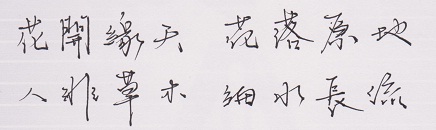 花開緣天 花落原地
人非草木 細水長流